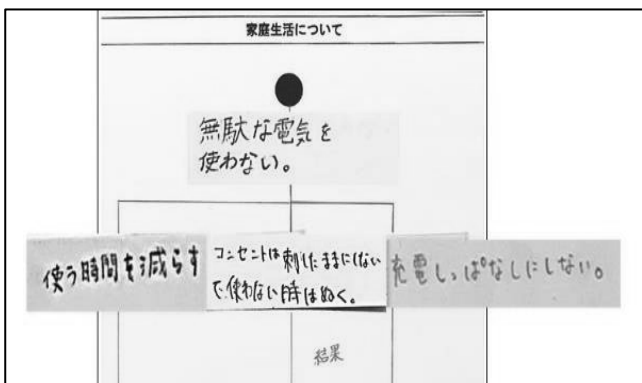 家庭生活について
無駄な電気を
使わない。
使う時間を減らす
コンセントは刺したままにしない
で使わない時はぬく。
充電しっぱなしにしない。
結果